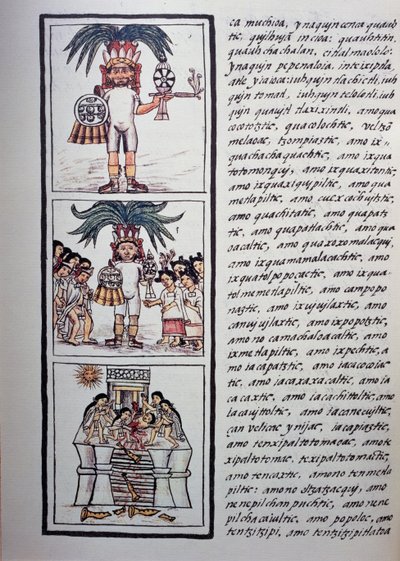 ca muchioa, ynaquin cenca quauh
tic, quilhuja in cioa: quauhtitin,
quauhchachalan, citlalmaololo:
ynaquin pepenaloia, intetixiptla
iuhquin tlachictli, iuh
quin tomatl, iuhquin telolotli, iuh
quin quavitl tlaxixintli, amo qua
cocototztic, quacolochtic, vel tzō
melaoac, tzompiaztic, amo ix
quachachaquachtic, amo ixqua
totomonquj, amo ixquaxitontic,
amo ixquaxiquipiltic, amo qua
metlapiltic, amo cuexcochujtztic,
amo quachitatic, amo quapatz
tic, amo quapatlachtic, amo qua
oacaltic, amo quaxoxomalacquj,
amo ixquamamalacachtic, amo
ixquatolpopocactic, amo ixqua
tolmemetlapiltic, amo campopo
naztic, amo ixujujlaxtic, amo
canvjvjlaxtic, amo ixpopotztic,
amono camachaloacaltic, amo
ixmetlapiltic, amo ixpechtic, a
mo iacapatztic, amo iacacocoiac
tic, amo iacaxacaltic, amo ia
cacaxtic, amo iacachittoltic, amo
iacavittoltic, amo iacanecujltic,
çan velicac yn ijac, iacapiaztic,
amo tenxipaltotomaoac, amo te
xipaltotomac, texipaltotomactic,
amo tencaxtic, amono tenmetla
piltic: amono eltzatzacquj, amo
nenepilchanpuchtic, amo nene
pilchacaiultic, amo popoloc, amo
tentzitzipi, amo tentzitzipitlatoa